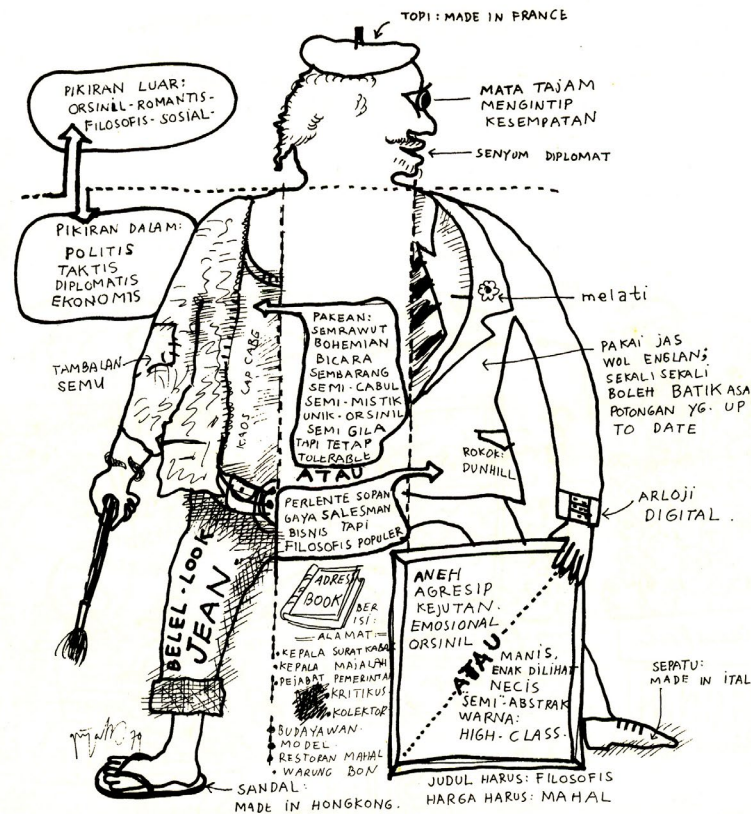 TOPI: MADE IN FRANCE
PIKIRAN LUAR:
ORSINIL-ROMANTIS-
FILOSOFIS-SOSIAL-
MATA TAJAM
MENGINTIP
KESEMPATAN
SENYUM DIPLOMAT
PIKIRAN DALAM:
POLITIS
TAKTIS
DIPLOMATIS
EKONOMIS
melati
TAMBALAN
SEMU
KAOS CAP CABE
PAKEAN:
SEMRAWUT
BOHEMIAN
BICARA
SEMBARANG
SEMI-CABUL
SEMI-MISTIK
UNIK-ORSINIL
SEMI GILA
TAPI TETAP
TOLERABLE
ATAU
PERLENTE SOPAN
GAYA SALESMAN
BISNIS TAPI
FILOSOFIS POPULER
PAKAI JAS
WOL ENGLAN;
SEKALI SEKALI
BOLEH BATIK ASA
POTONGAN YG. UP
TO DATE
ROKOK:
DUNHILL
ARLOJI
DIGITAL.
BELEL-LOOK
JEAN
ADRES
BOOK
BER
ISI:
ALAMAT:
• KEPALA SURAT KABA
KEPALA MAJALAH
• PEJABAT PEMERINTA
KRITIKUS
• KOLEKTOR
• BUDAYAWAN.
• MODEL.
• RESTORAN MAHAL
• WARUNG BON
ANEH
AGRESIP
KEJUTAN.
EMOSIONAL
ORSINIL
ATAU
MANIS,
ENAK DILIHAT
NECIS
SEMI-ABSTRAK
WARNA:
HIGH-CLASS.
SEPATU:
MADE IN ITAL
SANDAL:
MADE IN HONGKONG.
JUDUL HARUS: FILOSOFIS
HARGA HARUS: MAHAL